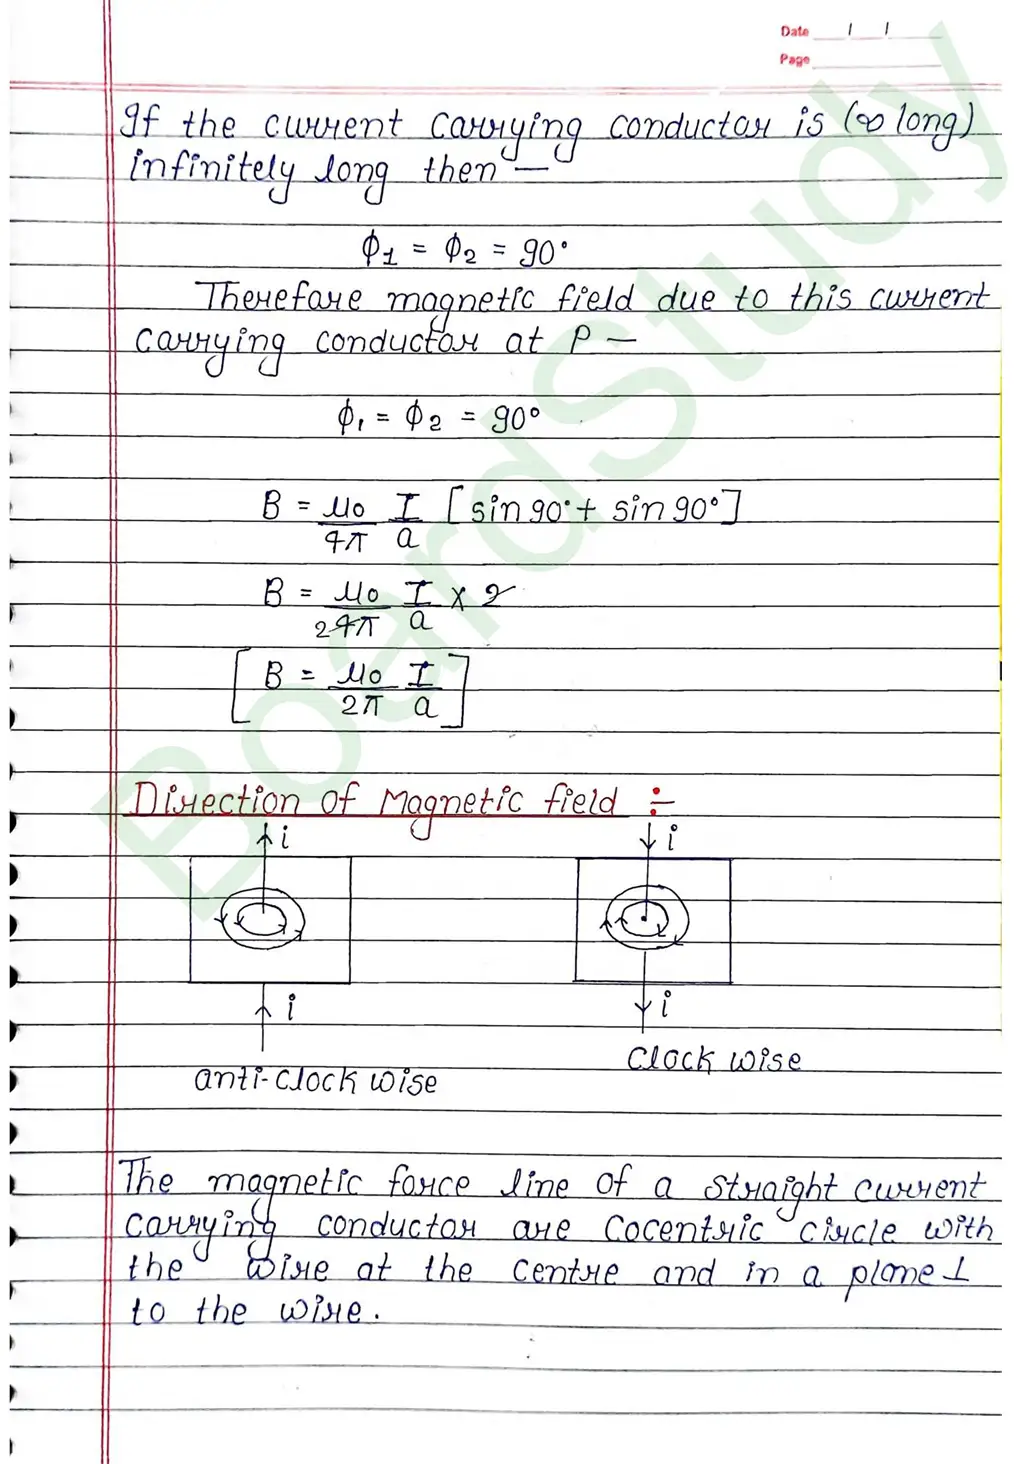 Date / /
Page
If the current carrying conductor is (∞ long)
infinitely long then —
ϕ1 = ϕ2 = 90°
Therefore magnetic field due to this current
carrying conductor at P —
ϕ1 = ϕ2 = 90°
B = μ0/4π I/a [sin90° + sin90°]
B = μ0/24π I/a × 2
[B = μ0/2π I/a]
Direction of Magnetic field ÷
i i
i i
Clock wise
anti-clock wise
The magnetic force line of a straight current
carrying conductor are cocentric circle with
the wire at the centre and in a plane ⊥
to the wire.
BoardStudy